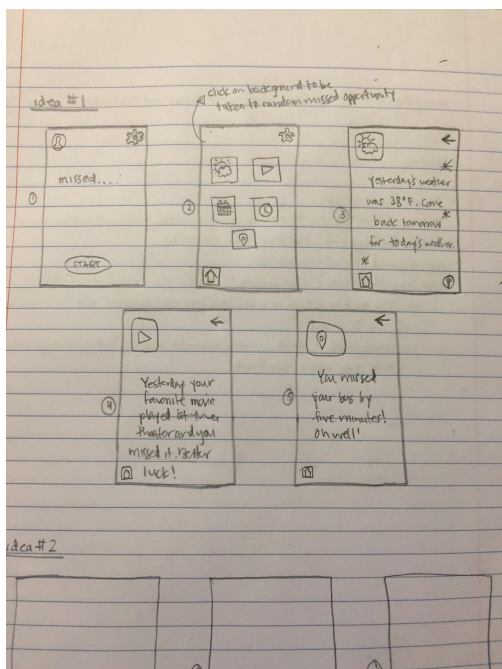 idea #1
click on background to be
taken to random missed opportunity
①
missed....
START
②
③
Yesterday's weather
was 38°F. Come
back tomorrow
for today's weather.
④
Yesterday your
favorite movie
played at the
theater and you
missed it. Better
luck!
⑤
You missed
your bus by
five minutes!
Oh well!
idea #2